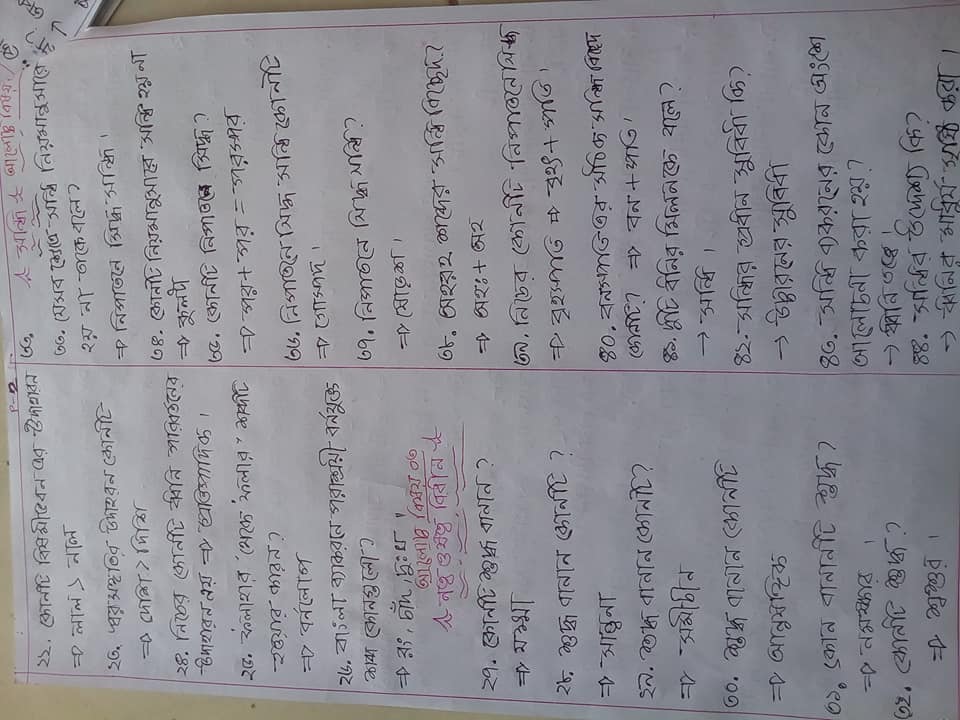 P-2
২২. কোনটি বিষমীভবন এর উদাহারন
⇒ লাল > নাল
২৩. স্বরসঙ্গতির উদাহরন কোনটি
⇒ দেশি > দিশি
২৪. নিচের কোনটি ধ্বনি পরিবর্তনের
উদাহারন নয় ⇒ প্রাতিপাদিক।
২৫. ফলাহার থেকে 'ফলার' শব্দটি
হওয়ার কারন?
⇒ বর্নলোপ
২৬. বাংলা ব্যাকরনে পরাশ্রয়ী বর্নযুক্ত
শব্দ কোনগুলো?
⇒ রং, চাঁদ, দুঃখ।
আলোচ্য বিষয় ০৩
☆ নত্ব ও ষত্ব বিধান ☆
২৭. কোনটি শুদ্ধ বানান?
⇒ যক্ষ্মা
২৮. শুদ্ধ বানান কোনটি?
⇒ সান্ত্বনা
২৯. শুদ্ধ বানান কোনটি?
⇒ সমীচীন
৩০. শুদ্ধ বানান কোনটি
⇒ আনুষঙ্গিক
৩১. কোন বানানটি শুদ্ধ?
⇒ নমস্কার ।
৩২. কোনটি শুদ্ধ?
⇒ শ্বশুর ।
৩৩.
☆ সন্ধি ☆ আলোচ্য বিষয়
৩৩. যেসব ক্ষেত্রে সন্ধি নিয়মানুসারে
হয় না তাকে বলে?
⇒ নিপাতনে সিদ্ধ সন্ধি।
৩৪. কোনটি নিয়মানুসারে সন্ধি হয় না
⇒ কুলটা
৩৫. কোনটি নিপাতনে সিদ্ধ?
⇒ পর + পর = পরস্পর
৩৬. নিপাতনে সিদ্ধ সন্ধি কোনটি
⇒ গোস্পদ।
৩৭. নিপাতনে সিদ্ধ সন্ধি?
⇒ ষোড়শ।
৩৮. অহরহ শব্দের সন্ধি বিচ্ছেদ?
⇒ অহঃ + অহ
৩৯. নিচের কোনটি নিপাতনে সিদ্ধ
⇒ বৃহস্পতি ⇒ বৃহৎ + পতি।
৪০. বনস্পতি এর সঠিক সন্ধি বিচ্ছেদ
কোনটি? ⇒ বন + পতি।
৪১. দুটি ধ্বনির মিলনকে বলে?
→ সন্ধি ।
৪২. সন্ধির প্রধান সুবিধা কি?
→ উচ্চারনের সুবিধা
৪৩. সন্ধি ব্যকরনের কোন অংশে
আলোচনা করা হয়?
→ ধ্বনি তত্ত্বে।
৪৪. সন্ধির উদ্দেশ্য কি?
→ ধ্বনির মাধুর্য সৃষ্টি করা ।